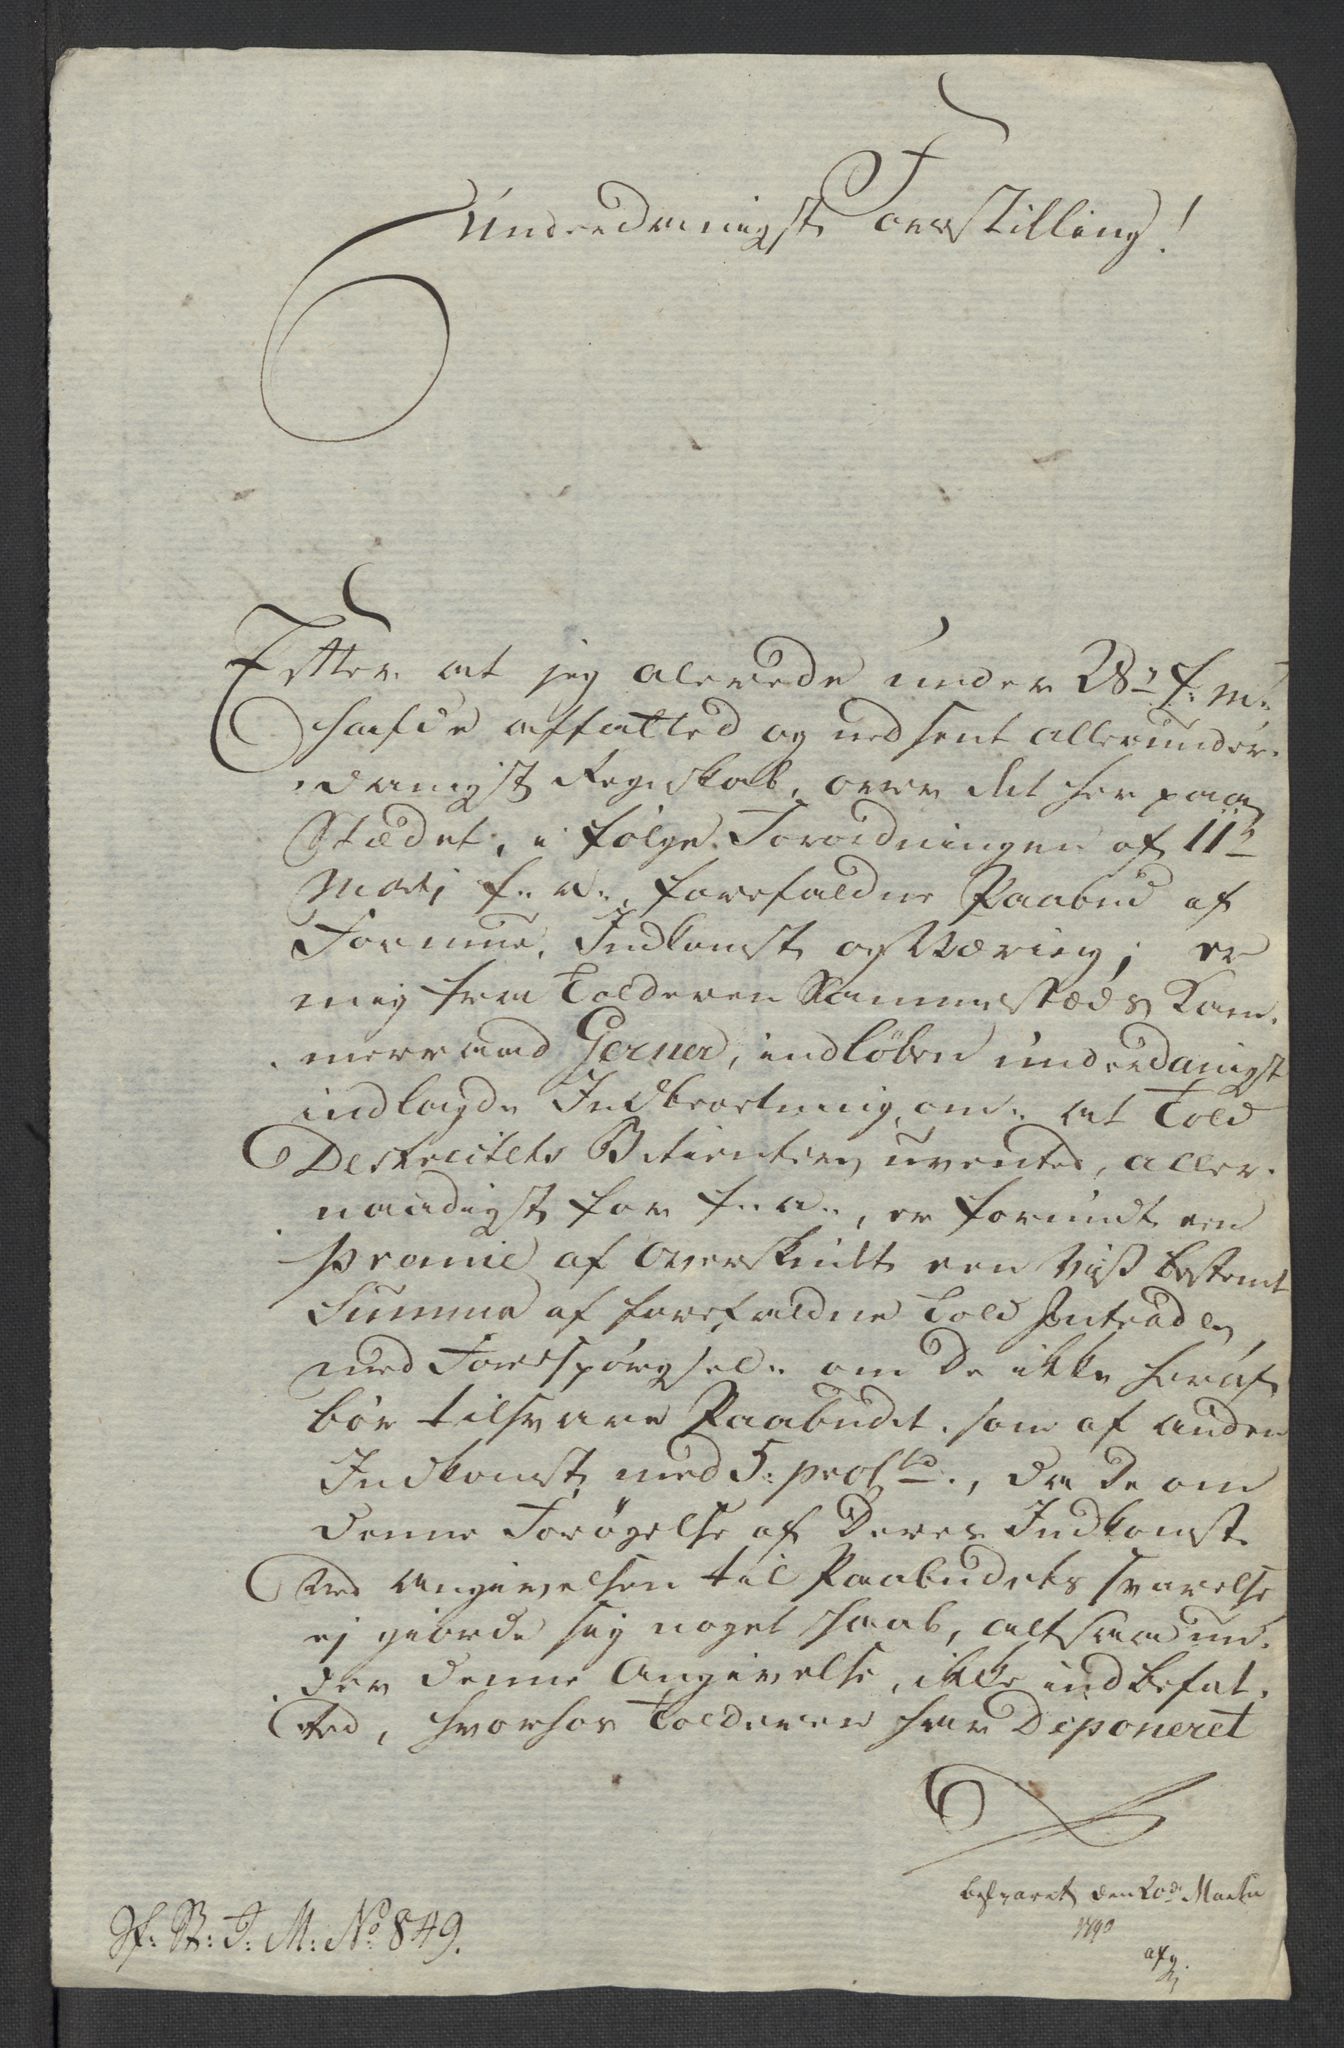 Underdanigst Forestilling!
Efter at jeg alerede under 28de f: m:
hafde affatted og nedsent allerunder-
danigst Regnskab, over det her paa
Stædet, i følge Forordningen af 11te
Martj f: a:, forefaldne Paabud af
Formue, Indkomst og Næring; er
mig fra Tolderen Sammestæds Kam-
merraad Gerner, indløben underdanigst
indlagde Indberetning, om: at Told
Betienter, uventet, aller-
naadigst for f: a:, er forundt een
Præmie af Overskudt een viss bestemt
Summa af forefaldne Told Intrader,
med Forespørgsel: om De ikke heraf
bør tilsvare Paabudet, som af anden
Indkomst med 5: proCto:, da De om
denne Forøgelse af Deres Indkomst
ved Angivelsen til Paabudets svarelse
ej giorde sig noget Haab, altsaa un-
der denne Angivelse, ikke indbefat-
ted, hvorhos Tolderen har Deponeret
besvaret den 20de Martii
1790
No: 849.